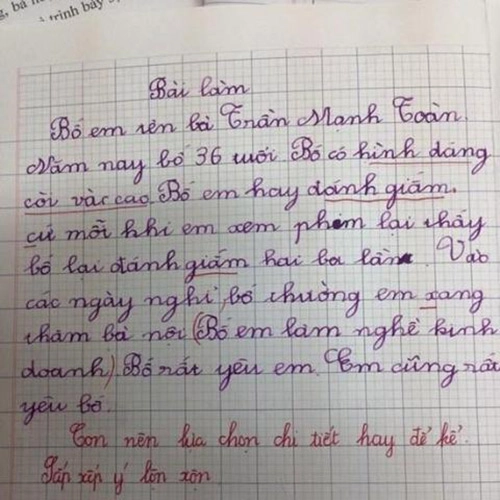 trình bày
Bài làm
Bố em tên bà Trần Mạnh Toàn.
Năm nay bố 36 tuổi Bố có hình dáng
còi vàc cao. Bố em hay dánh giắm.
cứ mỗi khi em xem phim lại thấy
bố lại đánh giắm hai ba lần. Vào
các ngày nghỉ, bố thường em xang
thăm bà nội (Bố em làm nghề kinh
doanh). Bố rất yêu em. Em cũng rất
yêu bố.
Con nên lựa chọn chi tiết hay để kể.
Sắp xếp ý lộn xộn